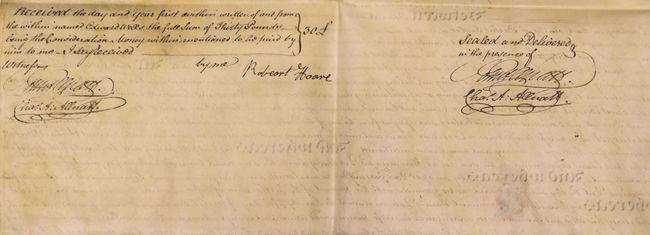 Received the day and year first within written of and from
the within named Edward Wells the full Sum of Thirty Pounds
being the Consideration Money within mentioned to be paid by
him to me
50£
Received
Witness
by me Robeart Hoare
Chas. A: Allnatt.
Sealed and Delivered
in the presence of
Chas. A: Allnatt.